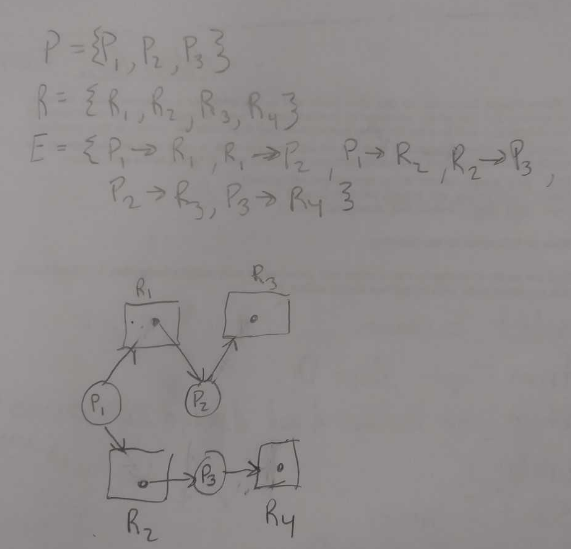 P = {P₁, P₂, P₃}
R = {R₁, R₂, R₃, R₄}
E = {P₁→R₁, R₁→P₂, P₁→R₂, R₂→P₃,
P₂→R₃, P₃→R₄}
R₁ R₃
P₁ P₂
P₃
R₂ R₄